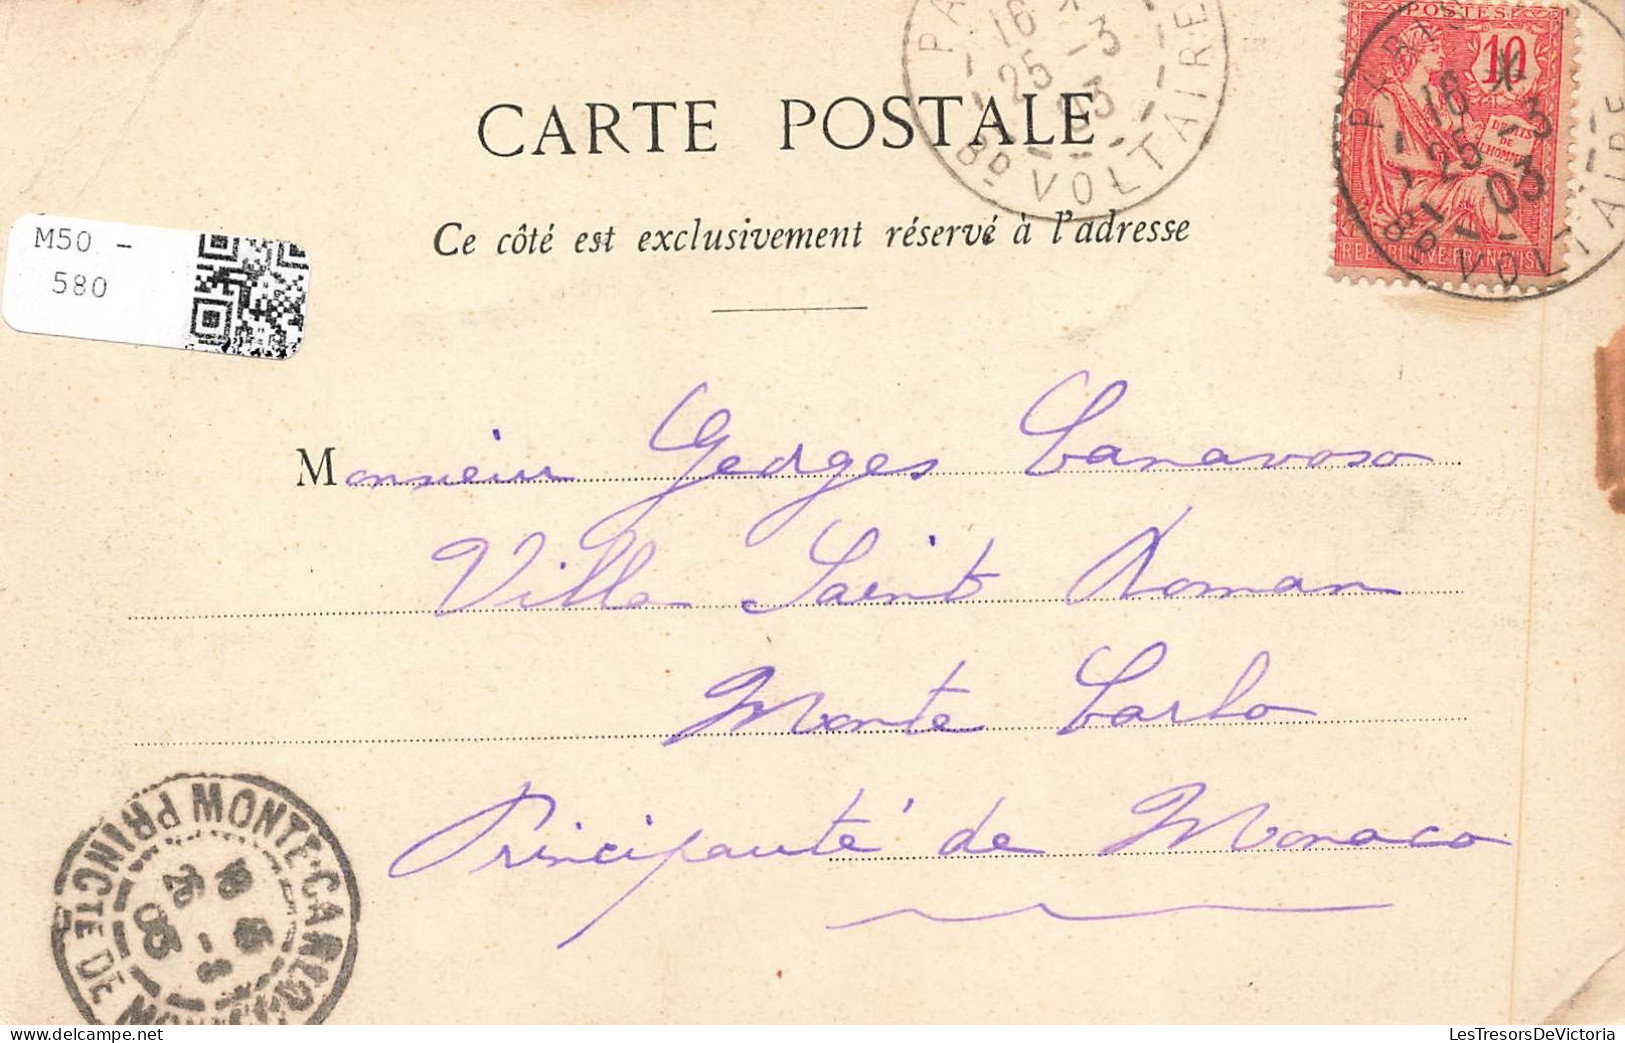 CARTE POSTALE
Ce côté est exclusivement réservé à l'adresse
M50 -
580
POSTES
10
DROITS
DE
L'HOMME
REPUBLIQUE FRANÇAISE
PARIS
18
25 -3
03
BD VOLTAIRE
PA
16
25 -3
03
BD VOLTAIRE
Monsieur Georges Canavoso
Villa Saint Roman
Monte Carlo
Principauté de Monaco
MONTE-CARLO
PRINCTE DE
26
03
LesTresorsDeVictoria